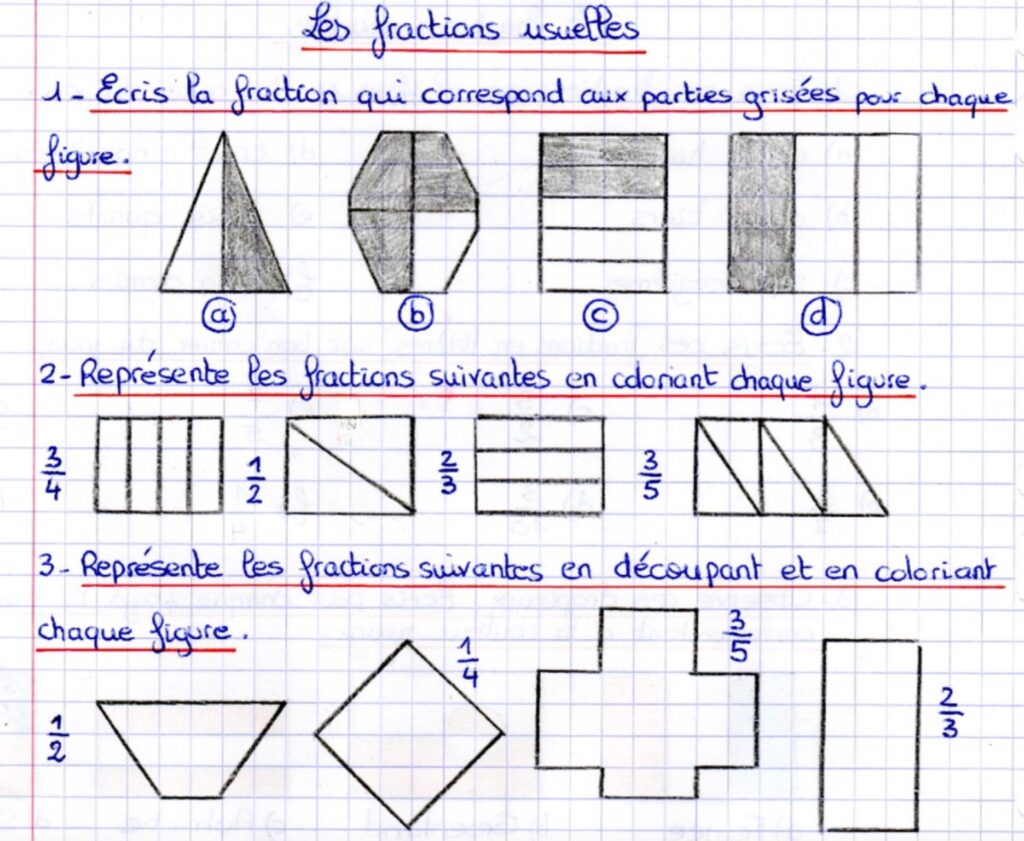 Les fractions usuelles
1 - Ecris la fraction qui correspond aux parties grisées pour chaque
figure.
a b c d
2 - Représente les fractions suivantes en coloriant chaque figure.
3/4 1/2 2/3 3/5
3 - Représente les fractions suivantes en découpant et en coloriant
chaque figure.
1/2 1/4 3/5 2/3